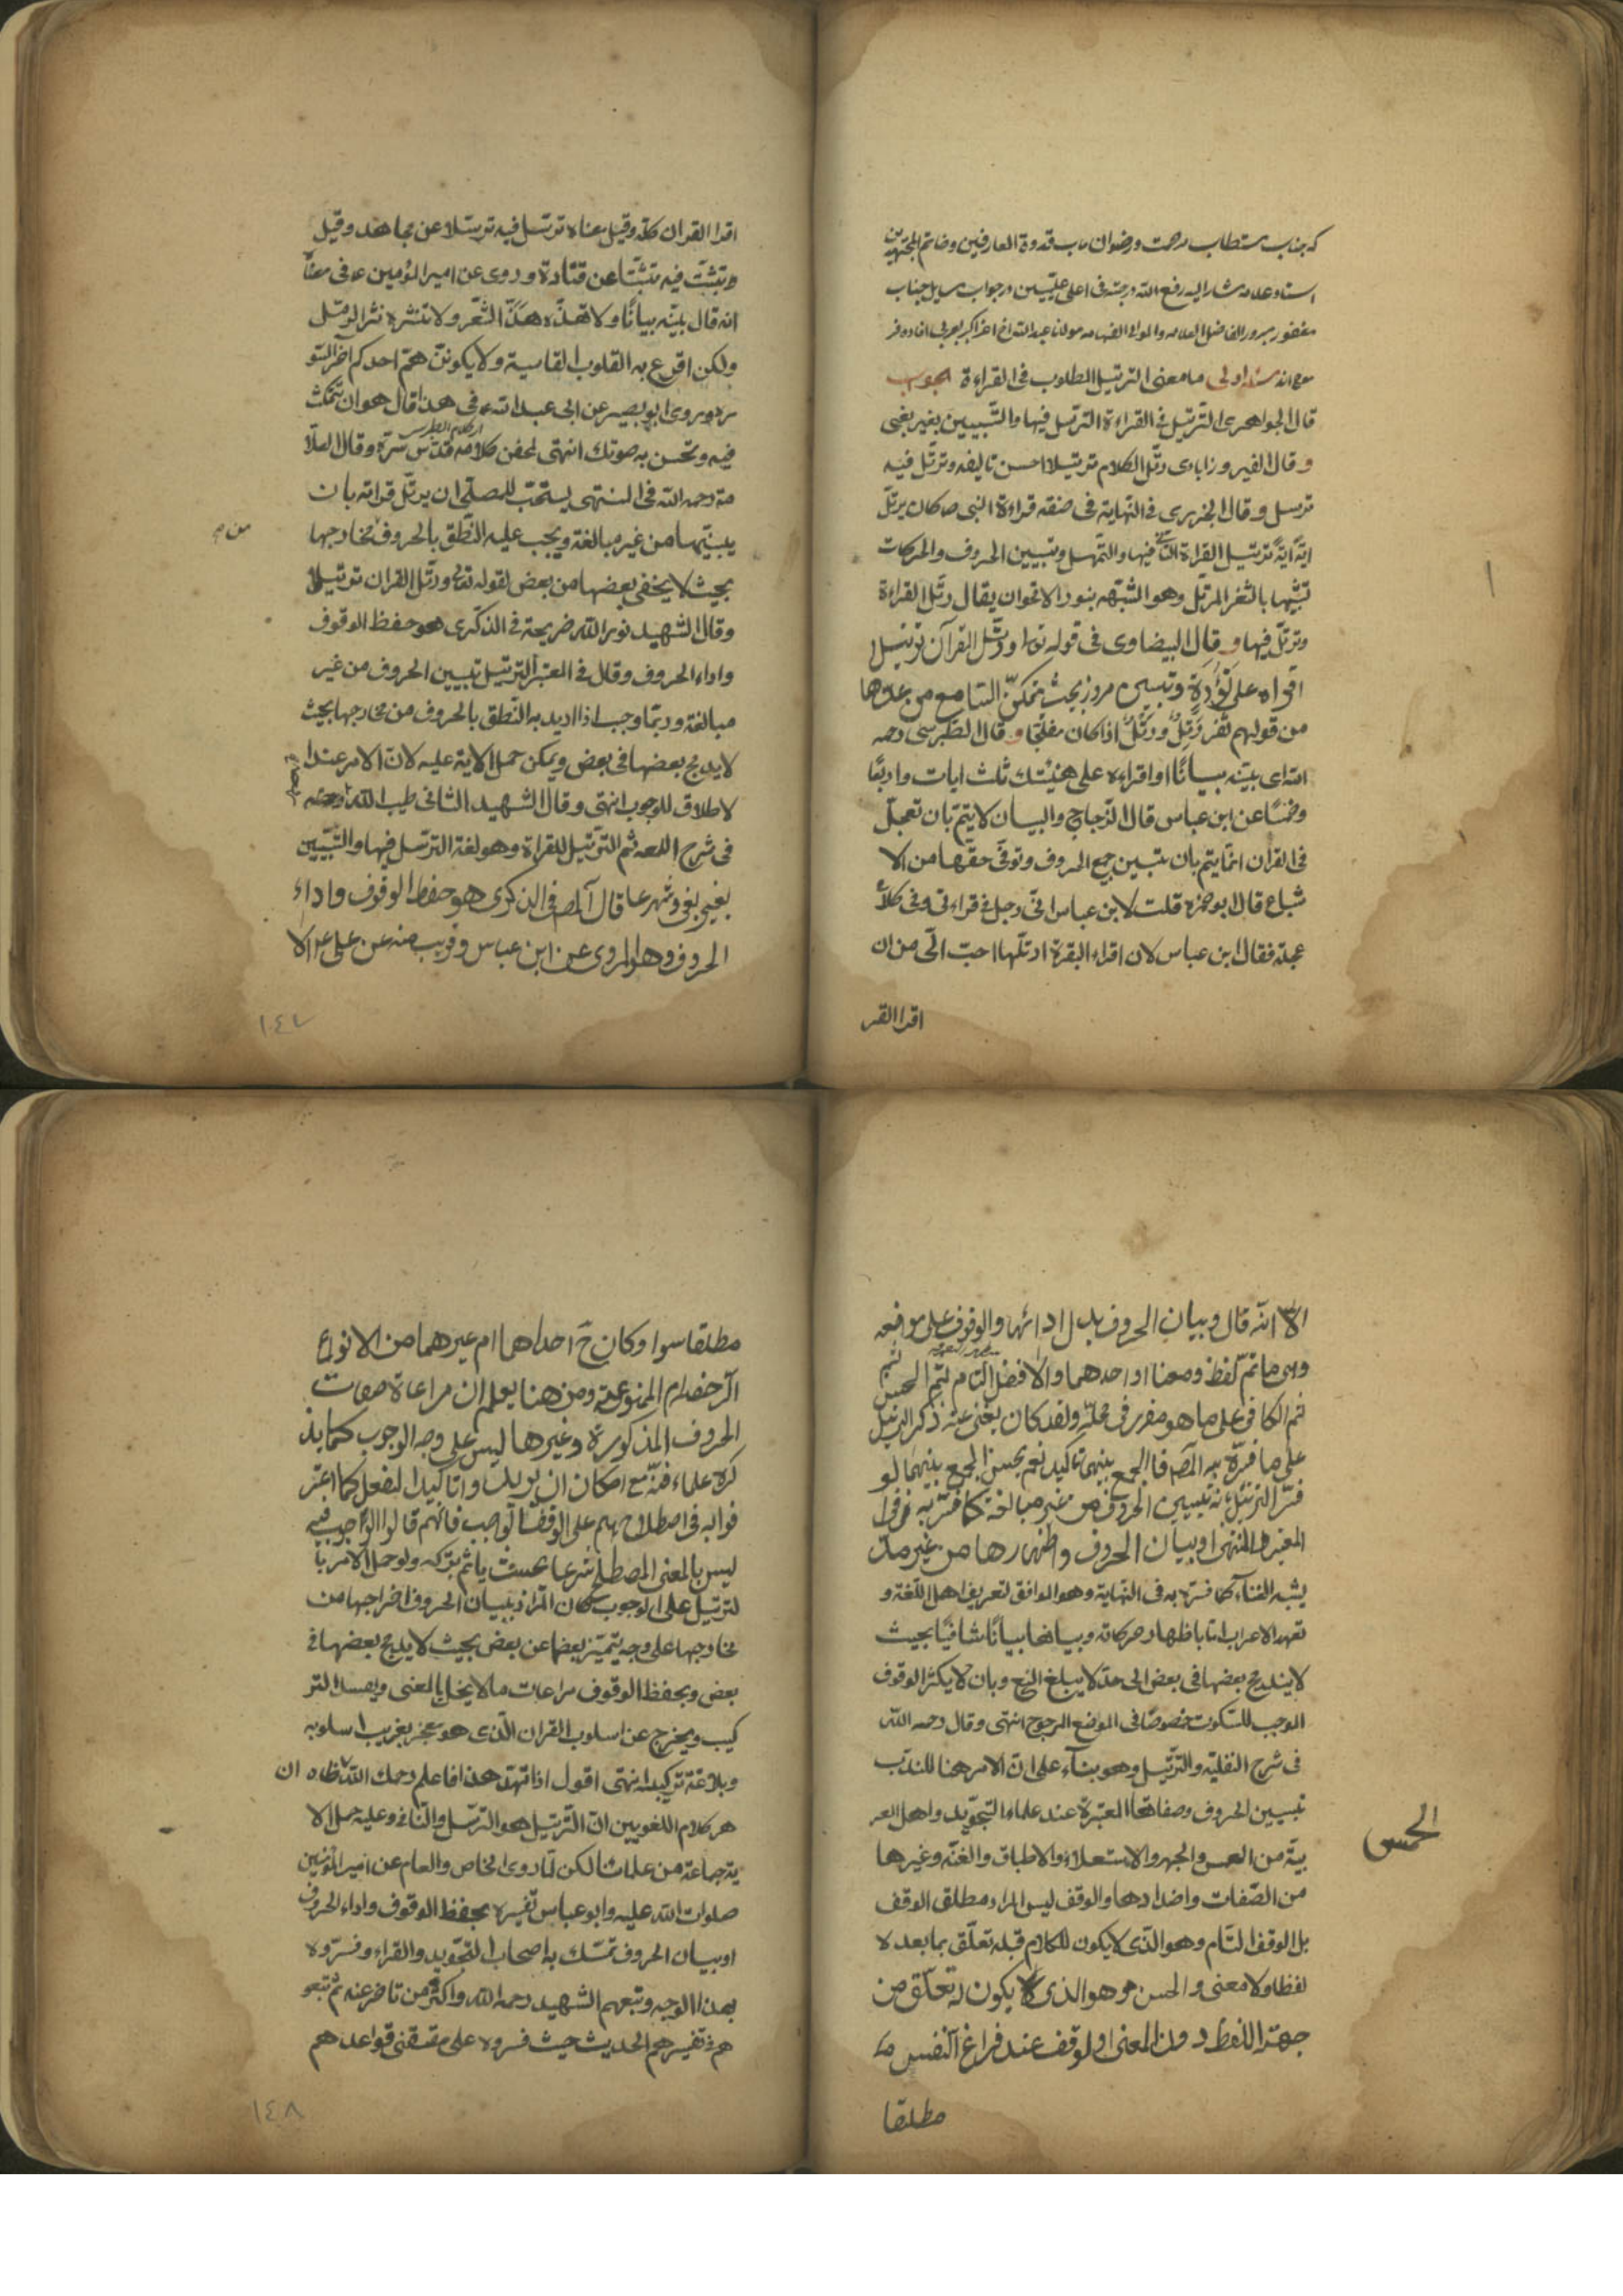 که جناب مستطاب مرحمت ورضوان ماب قدوة العارفين وخاتم المجتهدين
استاد علامه مشار اليه رفع الله درجته فى اعلى عليين در جواب مسايل جناب
مغفور مبرور الفاضل العلامه والمولى الفهامه مولانا عبد الله
مسئله اولى ما معنى الترتيل المطلوب فى القراءة الجواب
قال الجواهرى الترتيل فى القراءة الترسل فيها والتبيين بغير بغى
وقال الفيروزابادى رتل الكلام ترتيلا احسن تاليفه وترتل فيه
ترسل وقال الجزرى فى النهاية فى صفة قراءة النبى ص كان يرتل
اية اية ترتيل القراءة التانى فيها والتمهل وتبيين الحروف والحركات
تشبيها بالثغر المرتل وهو المشبه بنور الاقحوان يقال رتل القراءة
وترتل فيها و قال البيضاوى فى قوله تع او رتل القرآن ترتيلا
اقراه على تؤدة وتبيين حروف بحيث يتمكن السامع من عدها
من قولهم ثغر رتل ورتل اذا كان مفلجا و قال الطبرسى رحمه
الله اى بينه بيانا او اقراءه على هينتك ثلث ايات واربعا
وخمسا عن ابن عباس قال الزجاج والبيان لا يتم بان تعجل
فى القران انما يتم بان تبين جميع الحروف وتوفى حقها من الا
شباع قال ابو حمزه قلت لابن عباس انى رجل فى قراءتى وفى كلامى
عجلة فقال ابن عباس لان اقراء البقرة ارتلها احب الى من ان
اقرا القر
اقرا القران كله وقيل معناه ترتسل فيه ترسلا عن مجاهد وقيل
وتثبت فيه تثبتا عن قتادة وروى عن امير المؤمنين ع فى معناه
انه قال بينه بيانا ولا تهذه هذ الشعر ولا تنثره نثر الرمل
ولكن اقرع به القلوب القاسية ولا يكونن هم احدكم آخر السو
رة وروى ابو بصير عن ابى عبد الله ع فى هذا قال هو ان تتمكث
فيه وتحسن به صوتك انتهى كلامه قدس سره وقال العلا
مة رحمه الله فى المنتهى يستحب للمصلى ان يرتل قراته بان
يبينها من غير مبالغة ويجب عليه النطق بالحروف مخارجها
من م
بحيث لا يخفى بعضها من بعض لقوله تعالى ورتل القران ترتيلا
وقال الشهيد نور الله ضريحه فى الذكرى هو حفظ الوقوف
واداء الحروف وقال فى المعتبر الترتيل تبيين الحروف من غير
مبالغة وربما وجب اذا اريد به النطق بالحروف من مخارجها بحيث
لا يدمج بعضها فى بعض ويمكن حمل الاية عليه لان الامر عند ا
لاطلاق للوجوب انتهى وقال الشهيد الثانى طيب الله رمسه
فى شرح اللمعه ثم الترتيل للقراءة وهو لغة الترسل فيها والتبيين
بغير بغى وشرعا قال المص فى الذكرى هو حفظ الوقوف واداء
الحروف وهو المروى عن ابن عباس وقريب منه عن على ع الا
١٤٧
الا انه قال وبيان الحروف بدل ادائها والوقوف على موقعه
وهى ما تم لفظ ومعنا او احدهما والافضل التام ثم الحسن
ثم الكافى على ما هو مقرر فى محله ولقد كان يغنى عنه ذكر الترتيل
على ما فسره به المص فالجمع بينهما تاكيد نعم يحسن الجمع بينهما لو
فسر الترتيل بانه تبيين الحروف من غير مبالغة كما فسره به فى
المعتبر والمنتهى او بيان الحروف واظهارها من غير مد
يشبه الغناء كما فسره به فى النهاية وهو الموافق لتعريف اهل اللغة و
تعهد الاعراب اما باظهار حركاته وبيانها بيانا شافيا بحيث
لا يندمج بعضها فى بعض الى حد لا يبلغ المنع وبان لا يكثر الوقوف
الموجب للسكوت خصوصا فى الموضع المرجوح انتهى وقال رحمه الله
فى شرح النفلية والترتيل وهو بناء على ان الامر هنا للندب
تبيين الحروف وصفاتها المعتبرة عند علماء التجويد واهل العر
بية من الهمس والجهر والاستعلاء والاطباق والغنه وغيرها
الهمس
من الصفات واضدادها والوقف ليس المراد مطلق الوقف
بل الوقف التام وهو الذى لا يكون للكلام قبله تعلق بما بعده لا
لفظا ولا معنى والحسن وهو الذى يكون له تعلق من
جهة اللفظ دون المعنى او لوقف عند فراغ النفس
مطلقا
مطلقا سواء كان ح احداهما ام غيرهما من الانواع
الرخصام الممنوعة ومن هنا يعلم ان مراعاة صفات
الحروف المذكورة وغيرها ليس على وجه الوجوب كما يذ
كره علماء فنه مع امكان ان يريدوا تاكيد الفعل كما اعتر
فوا به فى اصطلاحهم على الوقف الواجب فانهم قالوا الواجب فيه
ليس بالمعنى المصطلح شرعا بحيث ياثم بتركه ولو حمل الامر با
لترتيل على الوجوب كان المراد ببيان الحروف اخراجها من
مخارجها على وجه يتميز بعضها عن بعض بحيث لا يدمج بعضها فى
بعض وبحفظ الوقوف مراعات ما لا يخل بالمعنى ويفسد التر
كيب ويخرج عن اسلوب القران الذى هو معجز بغريب اسلوبه
وبلاغة تركيبه انتهى اقول اذا تمهد هذا فاعلم رحمك الله ان ظا
هر كلام اللغويين ان الترتيل هو الترسل والتانى وعليه حمل الا
ية جماعة من علمائنا لكن لما روى الخاص والعام عن امير المؤمنين
صلوات الله عليه وابو عباس تفسيره بحفظ الوقوف واداء الحروف
او بيان الحروف تمسك به اصحاب التجويد والقراء وفسروه
بهذا الوجه وتبعهم الشهيد رحمه الله واكثر من تاخر عنه ثم تبعو
هم فى تفسيرهم الحديث حيث فسروه على مقتضى قواعدهم
١٤٨